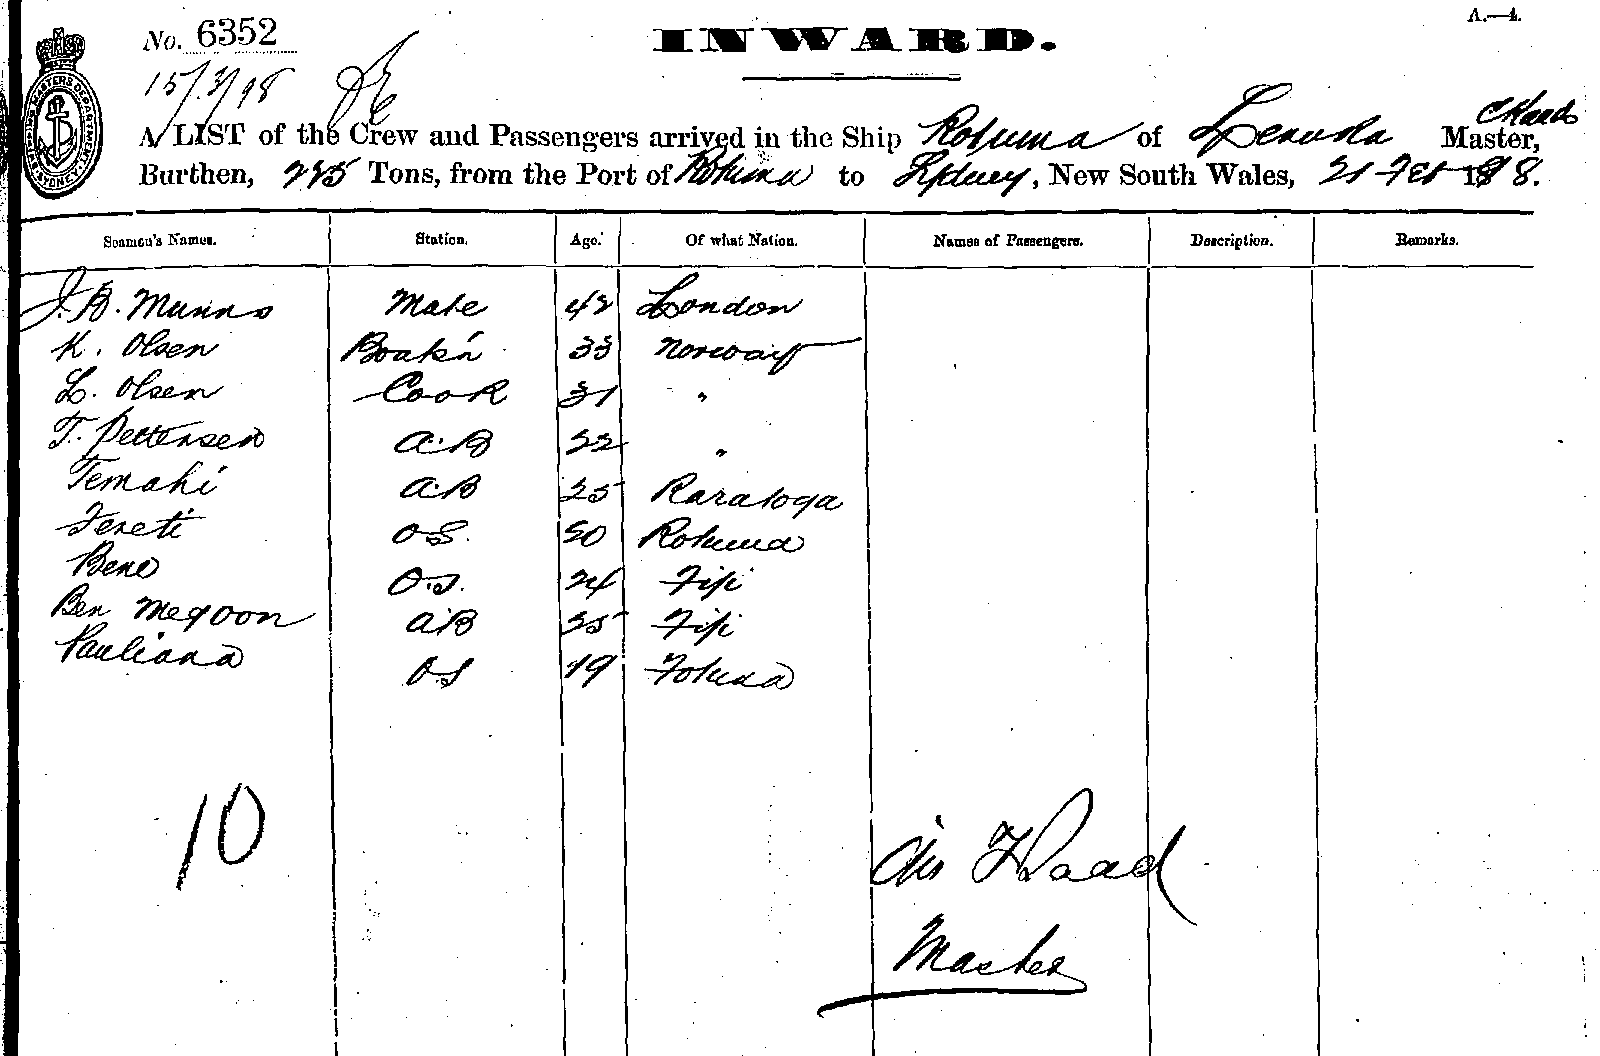 A.—4.
No. 6352
INWARD.
15/3/98
C Haad
A LIST of the Crew and Passengers arrived in the Ship Rotuma of Levuka Master,
Burthen, 225 Tons, from the Port of Rotuma to Sydney, New South Wales, 21 Feb 1898.
Seamen's Names. Station. Age. Of what Nation. Names of Passengers. Description. Remarks.
J. B. Munro Mate 42 London
K. Olsen Boats'n 33 Norway
L. Olsen Cook 31 "
T. Pettersen A.B 22 "
Temahi A.B 25 Raratoga
Fereti O S. 20 Rotuma
Bene O.S. 24 Fiji
Ben Megoon A.B 25 Fiji
Pauliana O S 19 Fotuna
10
Chr Haad
Master